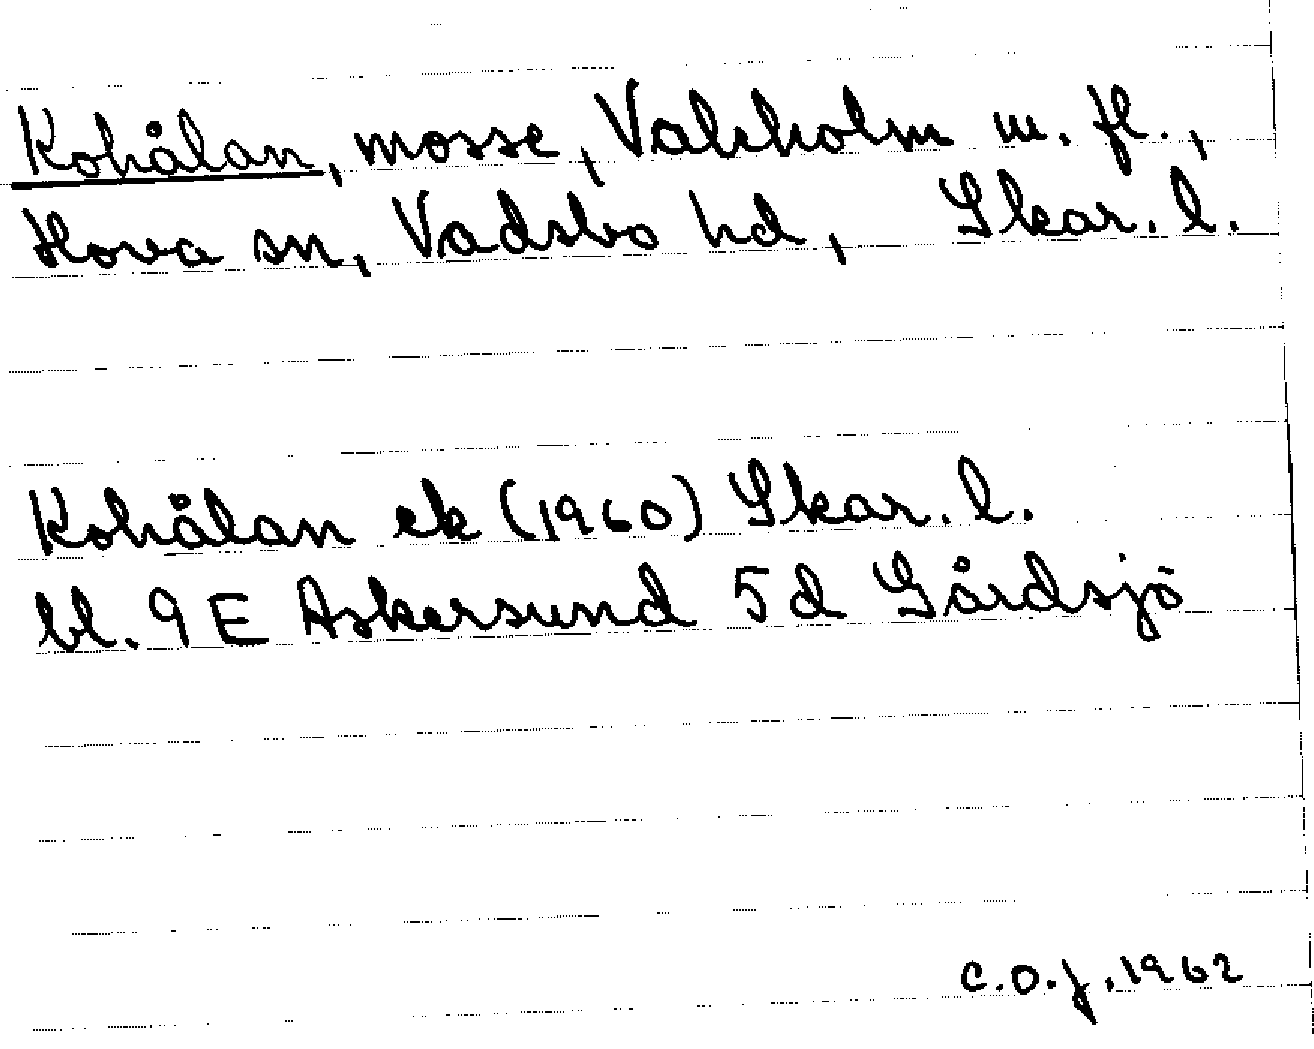 Kohålan, mosse, Valkholm m. fl.,
Hova sn, Vadsbo hd, Skar. l.
Kohålan ek (1960) Skar. l.
bl. 9 E Askersund 5 d Gårdsjö
C.O.J. 1962